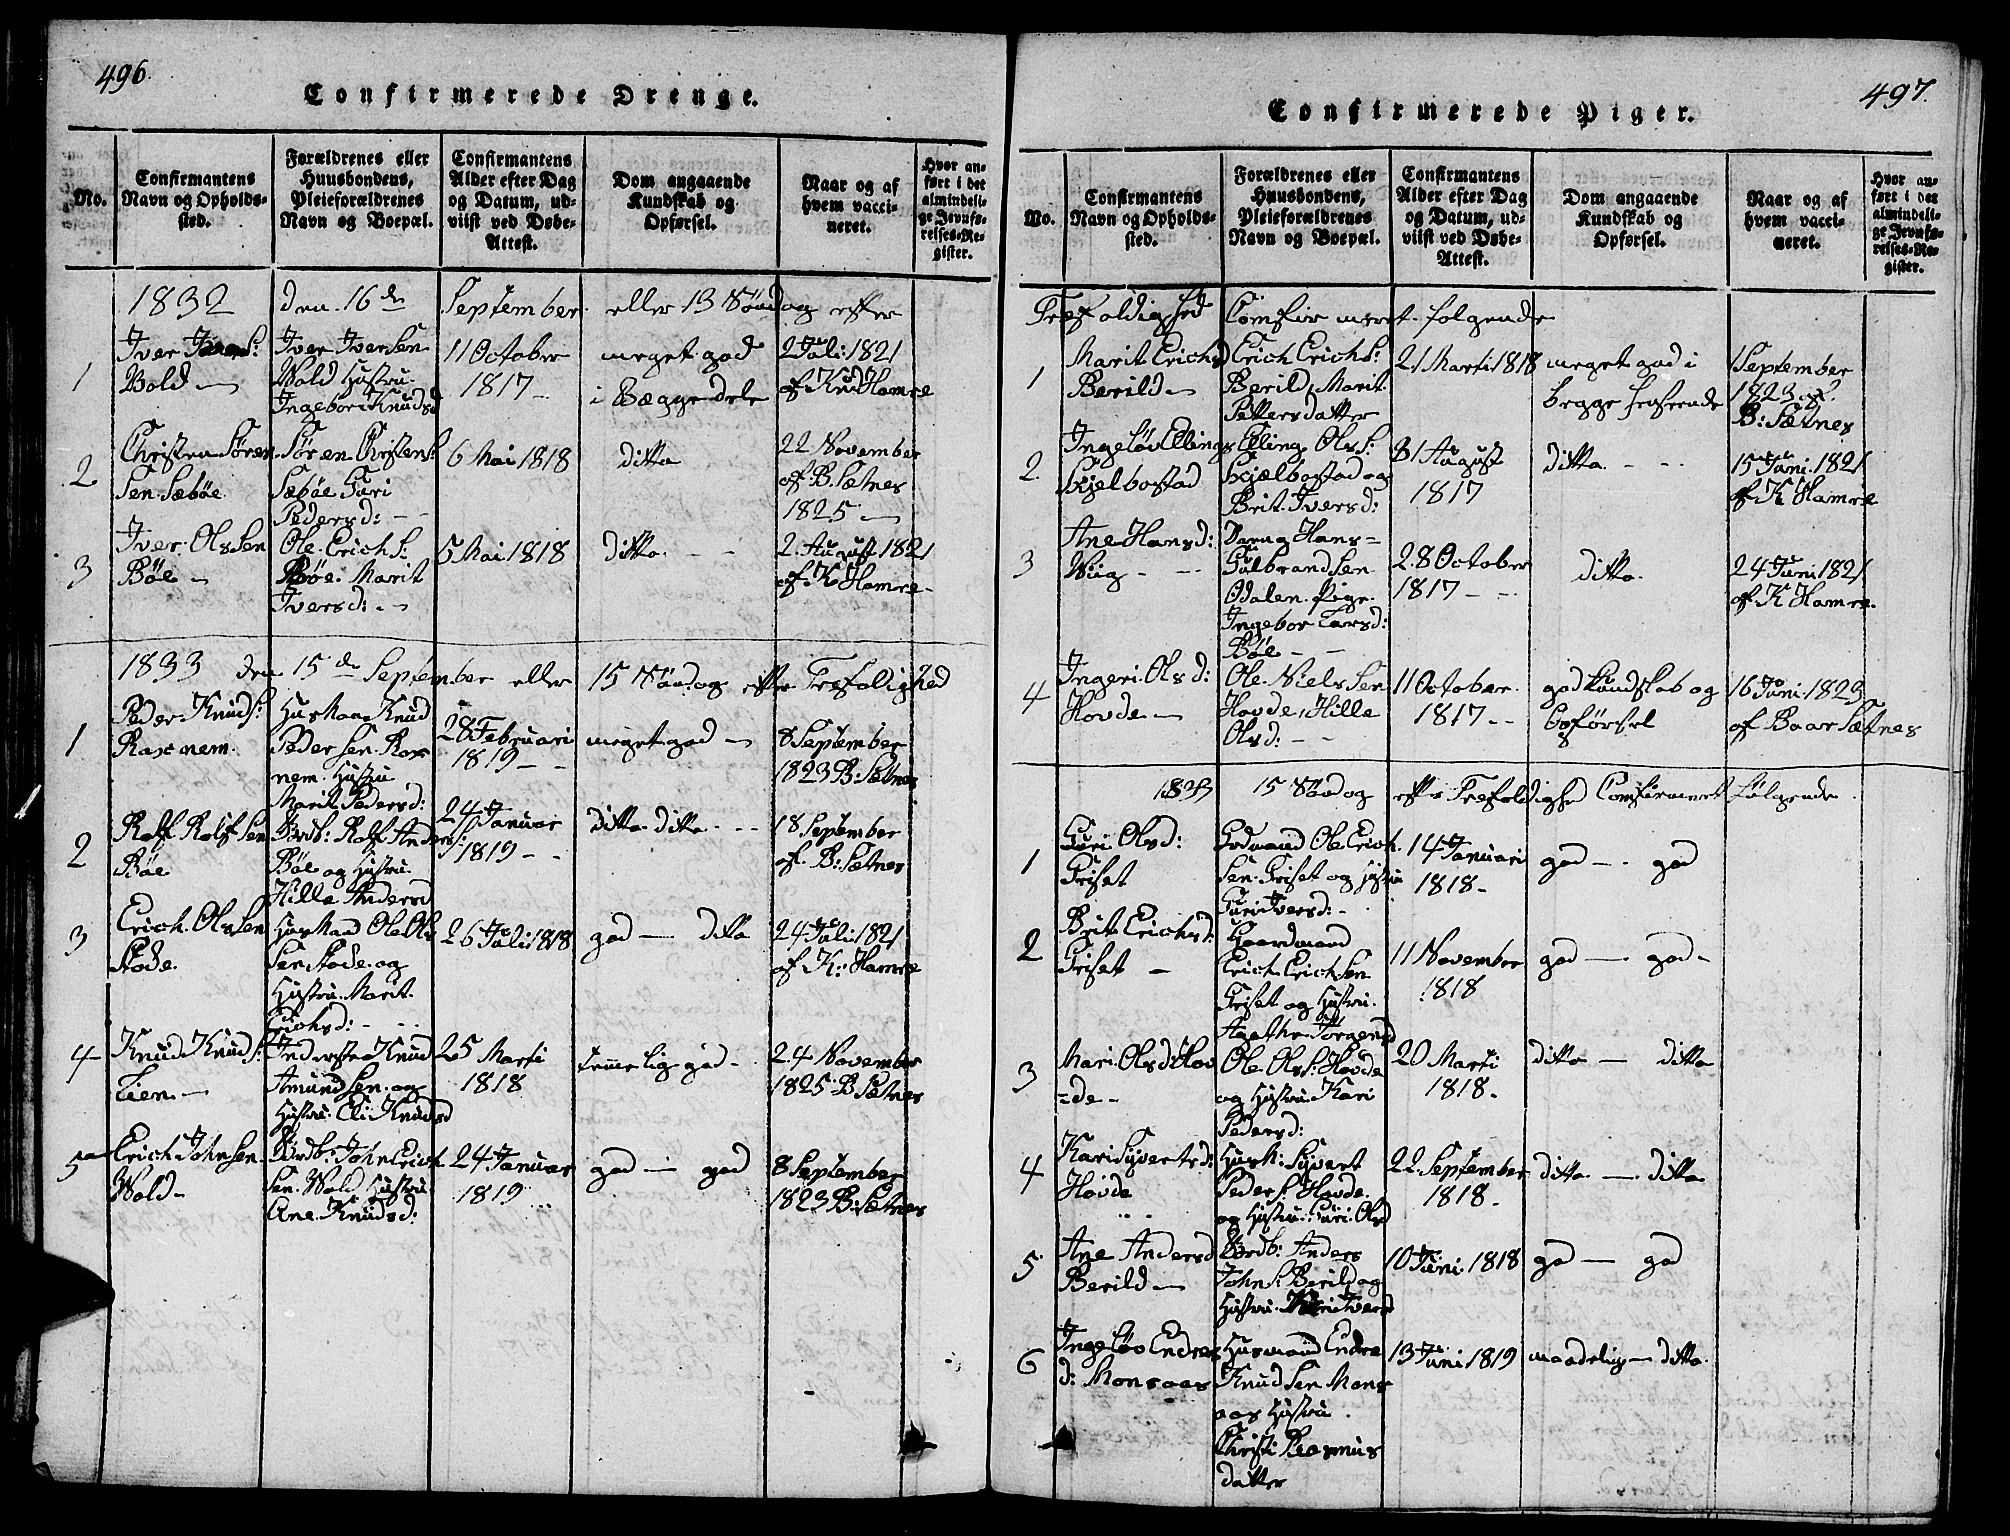 496.
Confirmerede Drenge.
No.
Confirmantens
Navn og Opholds-
sted.
Forældrenes eller
Huusbondens,
Pleieforældrenes
Navn og Boepæl.
Confirmantens
Alder efter Dag
og Datum, ud-
viist ved Døbe-
Attest.
Dom angaaende
Kundskab og
Opførsel.
Naar og af
hvem vacci-
neret.
Hvor an-
ført i det
almindeli-
ge Jevnfø-
relses-Re-
gister.
1832 den 16de September eller 13 Søndag efter
1
Iver Iversʃ:
Wold —
Iver Iversen
Wold Hustru
Ingebor Knudsd
11 October
1817 —
meget god
i Bægge dele
2 Juli 1821
af Knud Hamre
2
Christen Søren
Sen. Sæbøe.
Søren Christens:
Sæbøe Guri
Pedersd: — —
6 Mai 1818
ditto
22 November
af B. Sætnes
1825 —
3
Iver Olssen
Bøe —
Ole Erichs:
Bøe. Marit
Iversd: — —
5 Mai 1818
ditto. — —
2. August 1821
af K. Hamre —
1833 den 15de September eller 15 Søndag efter Trefoldighed
1
Peder Knuds:
Raxnem.
Husmand Knud
Pedersen Rox
nem. Hustru
Marit Pedersd:
28 Februari
1819 — —
meget god —
8 September
1823 B: Sætnes
2
Rolf Rolfsen
Bøe
Grdb: Rolf Anders:
Bøe og Hustru
Hille Andersd
24 Januar
1819 — —
ditto ditto — —
18 September
af B: Sætnes
3
Erich Olssen
Stode.
Husmand Ole Ols
Sen Stode og
Hustru Marit
Erichsd: —
26 Juli 1818
god — ditto
24 Juli 1821
af K: Hamre
4
Knud Knuds:
Lien —
Inderste Knud
Amundsen og
Hustru Eli Knudsd
25 Marti
1818
temmelig god —
24 November
1825 B Sætnes
5
Erich Johnsen
Wold —
Grdb: John Erich
Sen Wold Hustru
Ane Knudsd:
24 Januar
1819
god — god
8 September
1823 B: Sætnes
497.
Confirmerede Piger.
No.
Confirmantens
Navn og Opholds-
sted.
Forældrenes eller
Huusbondens,
Pleieforældrenes
Navn og Boepæl.
Confirmantens
Alder efter Dag
og Datum, ud-
viist ved Døbe-
Attest.
Dom angaaende
Kundskab og
Opførsel.
Naar og af
hvem vacci-
neret.
Hvor an-
ført i det
almindeli-
ge Jevnfø-
relses-Re-
gister.
Træfoldighed Comfirmeret følgende
1
Marit Erichsd
Berild —
Erich Erichs:
Berild, Marit
Pettersdatter
21 Marti 1818
meget god i
begge henseende
1 September
1823 af
B: Sætnes
2
Ingeløv Ellings
Skjelbostad
Elling Ols:
Skjælbostad og
Brit. Iversd:
31 August
1817
ditto — —
15 Juni 1821
af K Hamre
3
Ane Hansd:
Wiig — —
Hans =
Gulbrandsen
Odalen. Pige
Ingebor Larsd:
Bøe — —
28 October
1817 — —
ditto.
24 Juni 1821
af K Hamre.
4
Ingeri Olsd:
Hovde —
Ole Nielssen
Hovde, Hille
Olsd: — —
11 October.
1817 — —
god Kundskab og
Opførsel
16 Juni 1823
af Baar Sætnes
1833 15 Søndag efter Trefoldighed Comfirmeret følgende
1
Guri Olsd:
Griset
Grdmand Ole Erich
Sen Griset og Hustru
Guri Iversd: —
14 Januari
1818 —
god — god
2
Brit Erichsd:
Griset —
Gaardmand
Erich Erichsen
Griset og Hustru
Agathe Jørgensd
11 November
1818
god — god —
3
Mari Olsd: Hov
=de —
Ole Ols: Hovde
og Hustru Kari
Pedersd:
20 Marti
1818 —
ditto — ditto
4
Kari Syvertsd:
Hovde
Husm: Syvert
Peders: Hovde
og Hustru: Guri Olsd
22 September
1818 —
ditto — ditto
5
Ane Andersd
Berild —
Grdb: Anders
Johns: Berild og
Hustru Kari Iversd
10 Juni 1818
god — god
6
Ingeløv Endres
d: Monsaas
Husmand Endre
Knudsen Mons
aas Hustru
Christi Rasmus
datter
13 Juni 1819
maadelig — ditto.